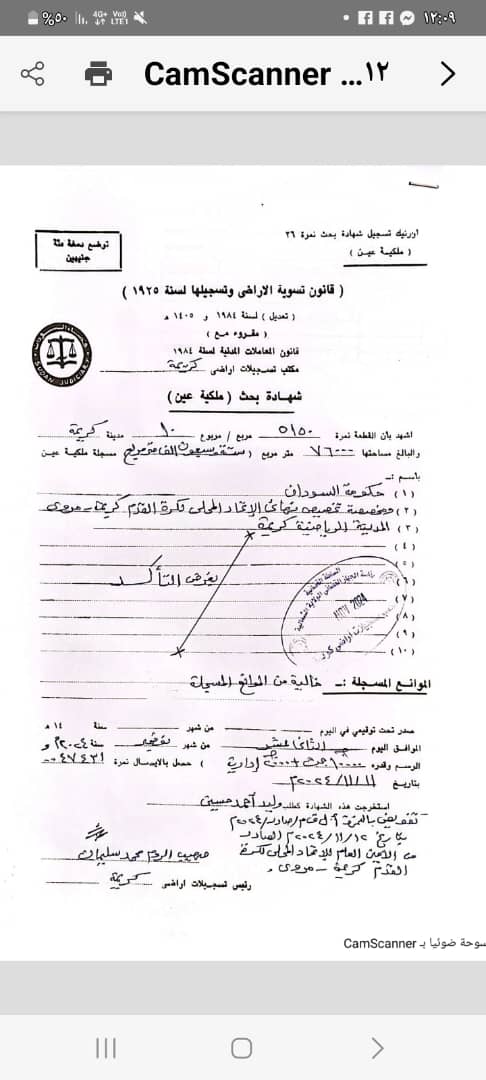 %٥٠
4G+
Vo)) LTE1
١٢:٠٩
CamScanner ...١٢
اورنيك تسجيل شهادة بحث نمرة ٢٦
( ملكية عين )
توضع دمغة مئة
جنيهين
( قانون تسوية الاراضى وتسجيلها لسنة ١٩٢٥ )
( تعديل ) لسنة ١٩٨٤ و ١٤٠٥ ه
( مقروء مع )
قانون المعاملات المدنية لسنة ١٩٨٤
مكتب تسجيلات اراضى كريمة
SUDAN JUDICIARY
شهادة بحث ( ملكية عين )
اشهد بان القطعة نمرة ٥١٥٠ مربع / مربوع ١٠ مدينة كريمة
والبالغ مساحتها ٧٦٠٠٠ متر مربع ( ستة وسبعون الف متر مربع مسجلة ملكية عين
باسم :-
(١) حكومة السودان
(٢) ومخصصة تخصيص نهائى الإتحاد المحلى لكرة القدم كريمة - مروى
(٣) المدينة الرياضية كريمة
(٤)
(٥)
(٦) بغرض التأكد
(٧)
(٨)
(٩)
(١٠)
السلطة القضائية
NOV 2024
تسجيلات اراضى كريمة
الموانع المسجلة :- خالية من الموانع المسجلة
صدر تحت توقيعي في اليوم من شهر سنة ١٤ ه
الموافق اليوم الثانى عشر من شهر نوفمبر سنة ٢٠٢٤ م و
الرسم وقدره إدارية ) حصل بالايصال نمرة
بتاريخ ٢٠٢٤/١١/١١م
استخرجت هذه الشهادة كطلب وليد أحمد حسين
بتفويض بالنمرة
بتاريخ ٢٠٢٤/١١/١٢م الصادر
من الأمين العام للإتحاد المحلى لكرة
القدم كريمة - مروى .
محمد سليمان
رئيس تسجيلات اراضى كريمة
سوحة ضوئيا بـ CamScanner